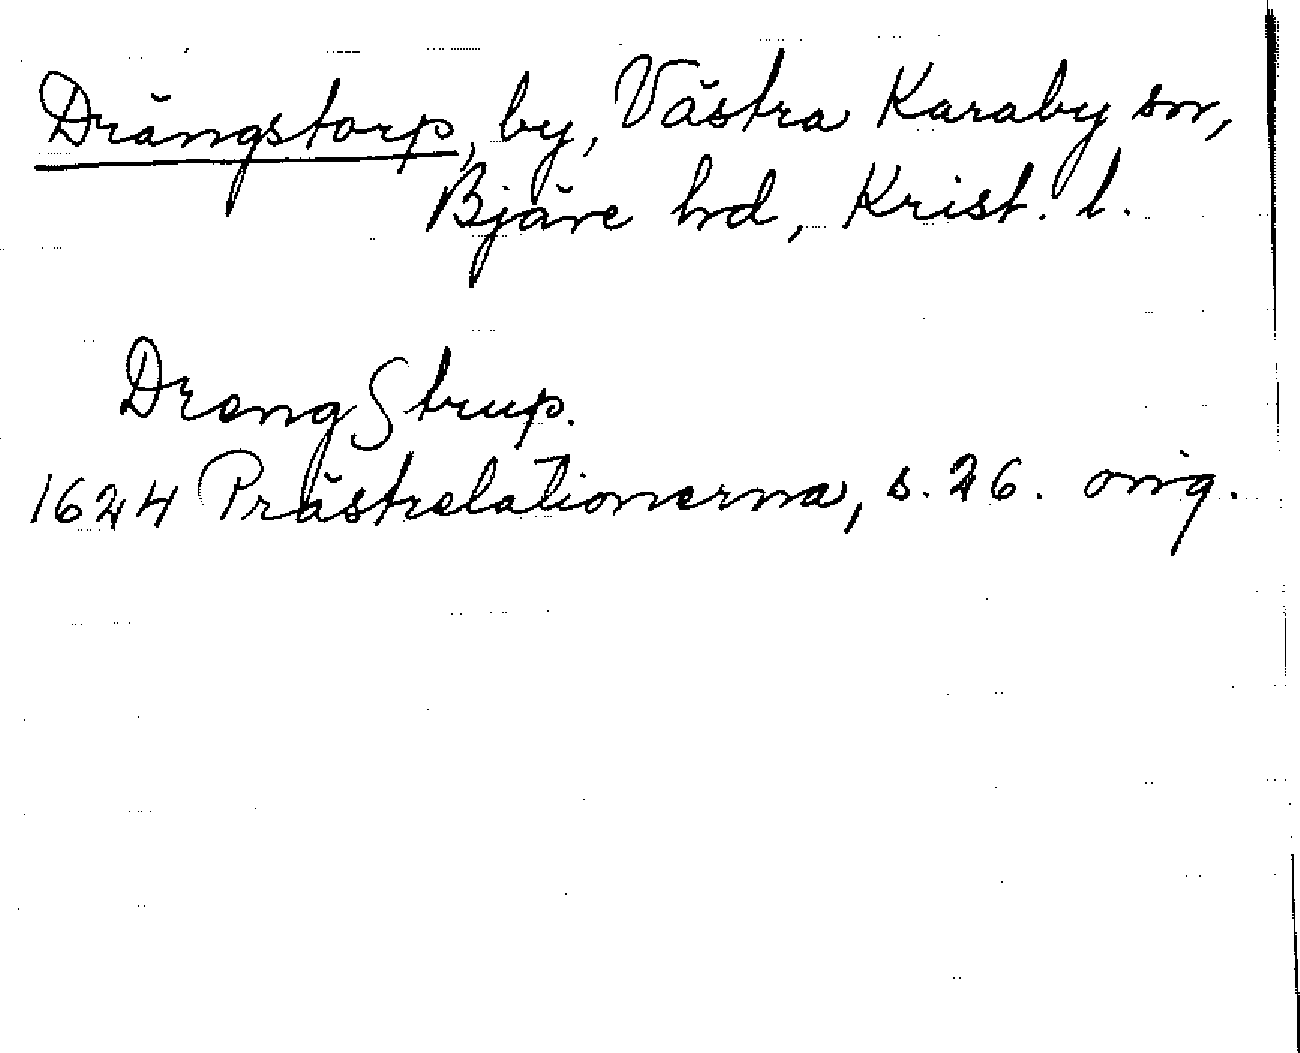 Drängstorp, by, Västra Karaby sn,
Bjäre hd, Krist. l.
DrengStrup.
1624 Prästrelationerna, s. 26. orig.